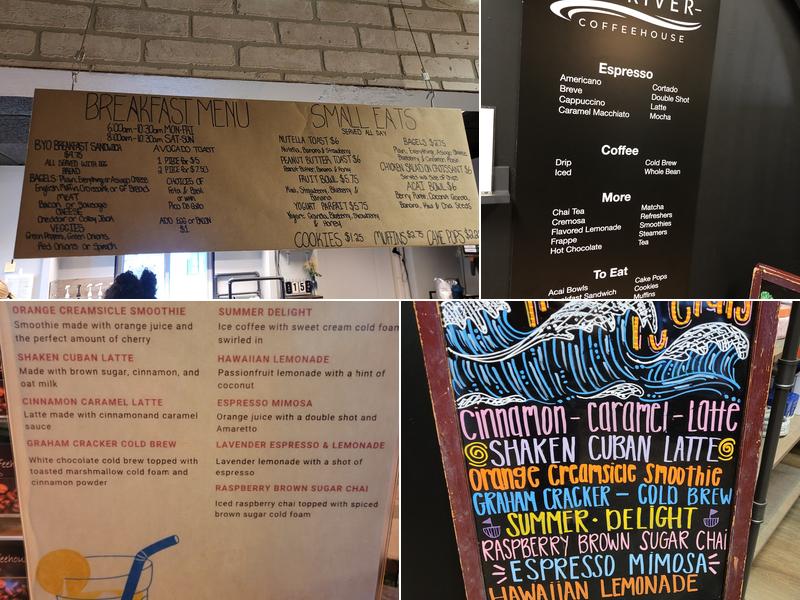 BREAKFAST MENU
6:00am-10:30am MON-FRI
8:00am-10:30am SAT-SUN
BYO BREAKFAST SANDWICH
$4.75
ALL SERVED WITH EGG
BREAD
BAGELS: Plain, Everything or Asiago Cheese
English Muffin, Croissant, or GF Bread
MEAT
Bacon or Sausage
CHEESE
Cheddar or Colby Jack
VEGGIES
Green Peppers, Green Onions,
Red Onions or Spinach
AVOCADO TOAST
1 PIECE for $5
2 PIECE for $7.50
CHOICES OF
Feta & Basil
or with
Pico De Gallo
ADD EGG or BACON
$1
SMALL EATS
SERVED ALL DAY
NUTELLA TOAST $6
Nutella, Banana & Strawberry
PEANUT BUTTER TOAST $6
Peanut Butter, Banana & Honey
FRUIT BOWL $5.75
Kiwi, Strawberry, Blueberry &
Banana
YOGURT PARFAIT $5.75
Yogurt, Granola, Blueberry, Strawberry
& Honey
COOKIES $1.25
BAGELS $2.75
Plain, Everything, Asiago Cheese,
Blueberry & Cinnamon Raisin
CHICKEN SALAD ON CROISSANT $6
ACAI BOWL $6
Berry Purée, Coconut, Granola,
Banana, Kiwi & Chia Seeds
MUFFINS $2.75 CAKE POPS
15
RIVER
COFFEEHOUSE
Espresso
Americano
Breve
Cappuccino
Caramel Macchiato
Cortado
Double Shot
Latte
Mocha
Coffee
Drip
Iced
Cold Brew
Whole Bean
More
Chai Tea
Cremosa
Flavored Lemonade
Frappe
Hot Chocolate
Matcha
Refreshers
Smoothies
Steamers
Tea
To Eat
Acai Bowls
Breakfast Sandwich
Cake Pops
Cookies
Muffins
ORANGE CREAMSICLE SMOOTHIE
Smoothie made with orange juice and
the perfect amount of cherry
SHAKEN CUBAN LATTE
Made with brown sugar, cinnamon, and
oat milk
CINNAMON CARAMEL LATTE
Latte made with cinnamonand caramel
sauce
GRAHAM CRACKER COLD BREW
White chocolate cold brew topped with
toasted marshmallow cold foam and
cinnamon powder
SUMMER DELIGHT
Ice coffee with sweet cream cold foam
swirled in
HAWAIIAN LEMONADE
Passionfruit lemonade with a hint of
coconut
ESPRESSO MIMOSA
Orange juice with a double shot and
Amaretto
LAVENDER ESPRESSO & LEMONADE
Lavender lemonade with a shot of
espresso
RASPBERRY BROWN SUGAR CHAI
Iced raspberry chai topped with spiced
brown sugar cold foam
cinnamon-caramel-latte
SHAKEN CUBAN LATTE
Orange Creamsicle Smoothie
GRAHAM CRACKER - COLD BREW
SUMMER · DELIGHT
RASPBERRY BROWN SUGAR CHAI
ESPRESSO MIMOSA
HAWAIIAN LEMONADE